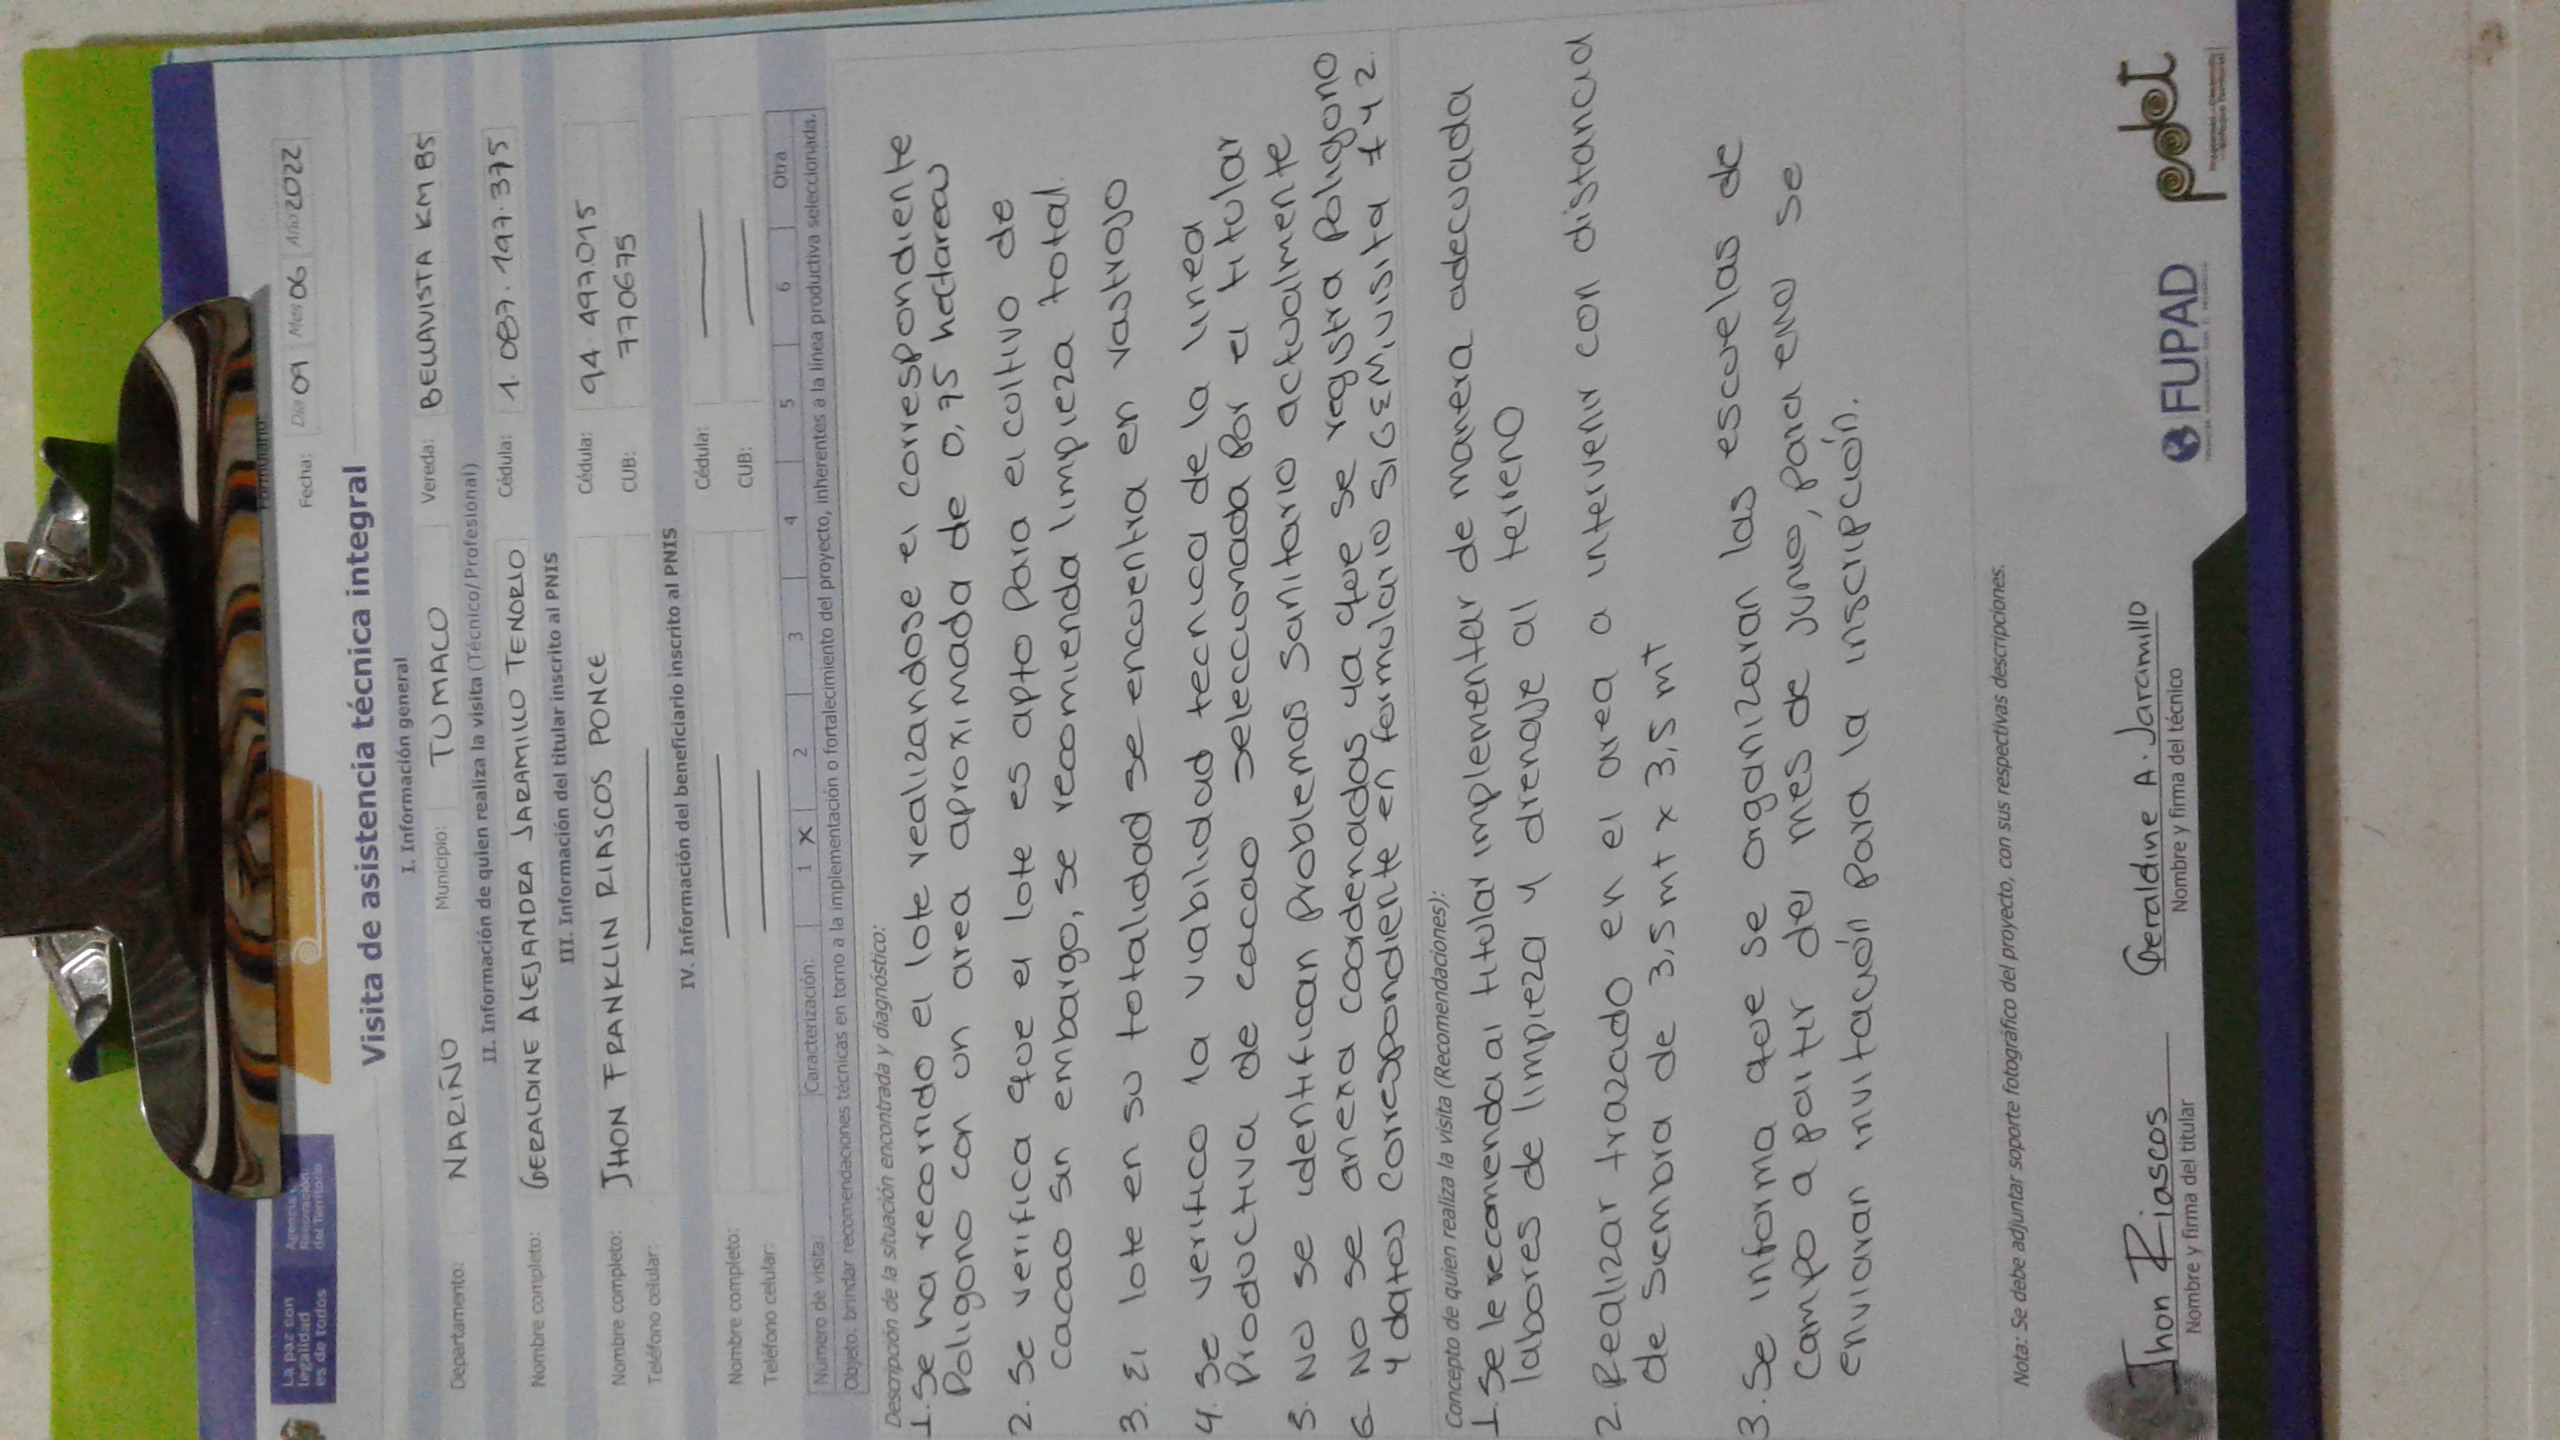 La paz con
legalidad
es de todos
Agencia
Renovación
del Territorio
Formulario
Fecha: Día 09 Mes 06 Año 2022
Visita de asistencia técnica integral
I. Información general
Departamento: NARIÑO Municipio: TUMACO Vereda: BELLAVISTA KM 85
II. Información de quien realiza la visita (Técnico/Profesional)
Nombre completo: GERALDINE ALEJANDRA JARAMILLO TENORIO Cédula: 1.087.197.375
III. Información del titular inscrito al PNIS
Nombre completo: JHON FRANKLIN RIASCOS PONCE Cédula: 94 497.015
Teléfono celular: CUB: 770675
IV. Información del beneficiario inscrito al PNIS
Nombre completo: Cédula:
Teléfono celular: CUB:
Número de visita: Caracterización: 1 X 2 3 4 5 6 Otra
Objeto: brindar recomendaciones técnicas en torno a la implementación o fortalecimiento del proyecto, inherentes a la línea productiva seleccionada.
Descripción de la situación encontrada y diagnóstico:
1. Se ha recorrido el lote realizandose el correspondiente
Poligono con un area aproximada de 0,75 hectareas
2. Se verifica que el lote es apto para el cultivo de
cacao sin embargo, se recomienda limpieza total.
3. El lote en su totalidad se encuentra en rastrojo
4. Se verifico la viabilidad tecnica de la linea
Productiva de cacao seleccionada por el titular
5. No se identifican problemas sanitario actualmente
6 No se anexa coordenadas ya que se registra poligono
y datos correspondiente en formulario SIGEM, visita 1 y 2.
Concepto de quien realiza la visita (Recomendaciones):
1. Se le recomienda al titular implementar de manera adecuada
labores de limpieza y drenaje al terreno
2. Realizar trazado en el area a intervenir con distancia
de siembra de 3,5 mt x 3,5 mt
3. Se informa que se organizaran las escuelas de
campo a partir del mes de junio, para ello se
enviaran invitación para la inscripción.
Nota: Se debe adjuntar soporte fotográfico del proyecto, con sus respectivas descripciones.
Jhon Riascos
Nombre y firma del titular
Geraldine A. Jaramillo
Nombre y firma del técnico
FUPAD
pdet